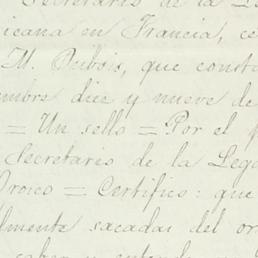 Secretario de la Le
icana en Francia, ce
M. Dubois, que const
mbre diez y nueve de
= Un sello = Por el p
Secretario de la Lega
Orozco = Certifico: que
lmente sacadas del or